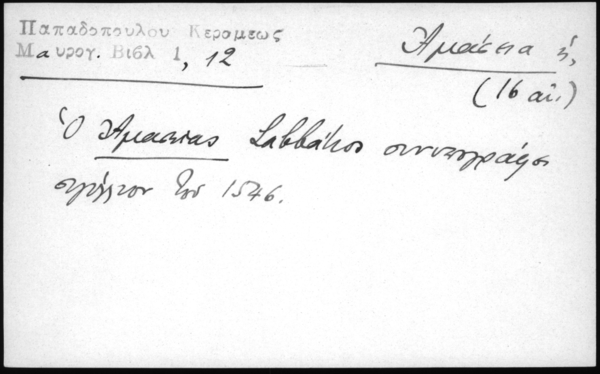 Παπαδοπουλου Κεραμεως
Μαυρογ. Βιβλ 1, 12
Ἀμάσεια ἡ,
(16 αἰ.)
Ὁ Ἀμασείας Σαββάτιος συνυπογράφει
σιγίλλιον τοῦ 1546.